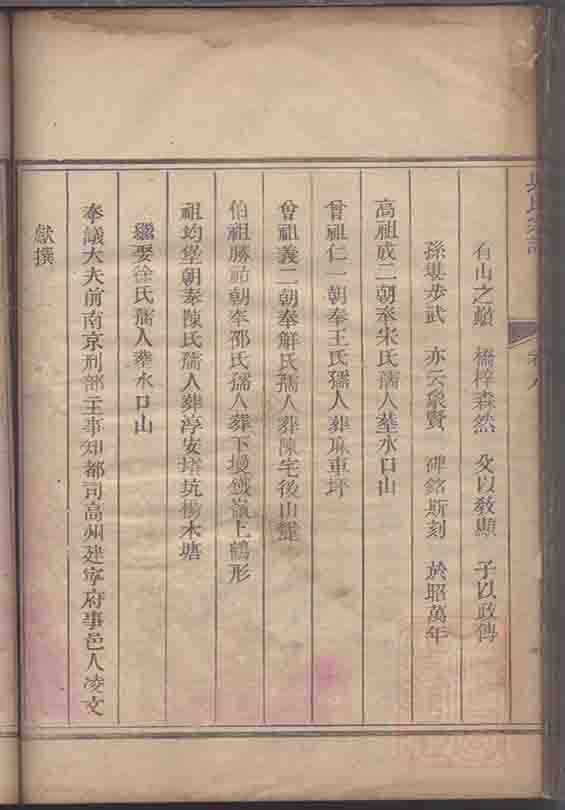 吳氏宗譜
卷八
有山之巔　橋梓森然　父以敎顯　子以政傳
孫㽵步武　亦云象賢　碑銘斯刻　於昭萬年
高祖成二朝奉宋氏孺人塟水口山
曾祖仁一朝奉王氏孺人葬麻車坪
曾祖義二朝奉解氏孺人葬陳宅後山蓬
伯祖勝祐朝奉邵氏孺人葬下塢鐵嶺上鶴形
祖均堡朝奉陳氏孺人葬淳安塔坑楊木塘
繼娶徐氏孺人葬水口山
奉議大夫前南京刑部主事知都司高州建寧府事邑人凌文
獻撰